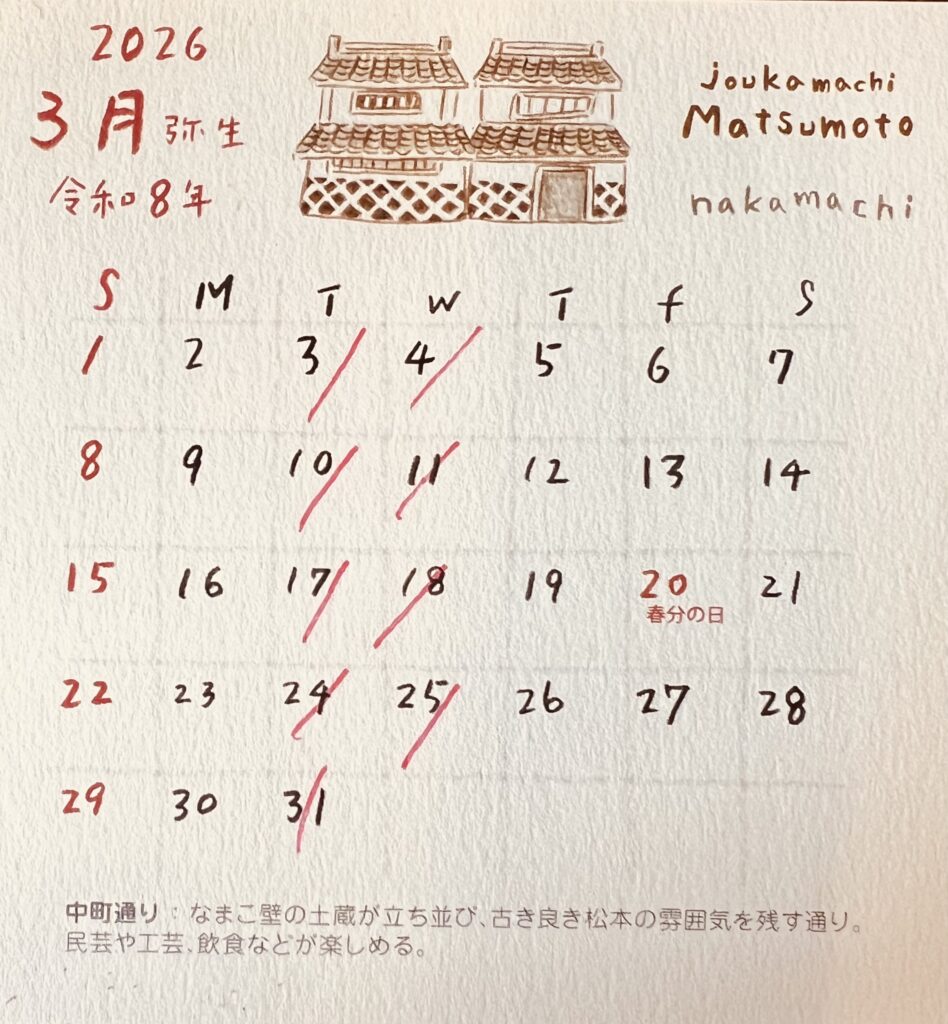 2026
3月 弥生
令和8年
joukamachi
Matsumoto
nakamachi
S M T W T f S
1 2 3 4 5 6 7
8 9 10 11 12 13 14
15 16 17 18 19 20 21
春分の日
22 23 24 25 26 27 28
29 30 31
中町通り：なまこ壁の土蔵が立ち並び、古き良き松本の雰囲気を残す通り。
民芸や工芸、飲食などが楽しめる。